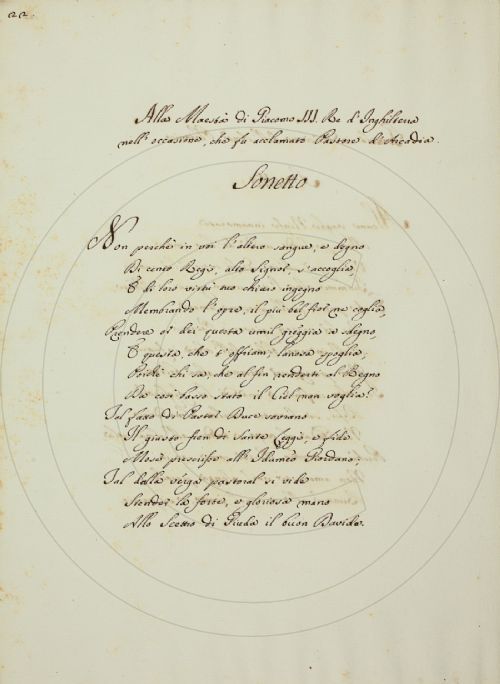 22.
Alla Maestà di Giacomo III. Re d'Inghilterra
nell'occasione, che fu acclamato Pastore d'Arcadia.
Sonetto
Non perchè in voi l'altero sangue, e degno
Di cento Regi, alto Signor, s'accoglia,
E di loro virtù tuo chiaro ingegno
Membrando l'opre, il più bel fior ne coglia,
Prendere or dei questa umil greggia a sdegno,
E questa, che t'offriam, lanosa spoglia;
Poichè chi sa, che al fin renderti al Regno
Da così basso stato il Ciel non voglia?
Tal farsi di Pastor Duce sovrano
Il giusto fren di Sante Leggi, e fide
Mosè prescrisse all'Idumeo Giordano;
Tal dalla verga pastoral si vide
Stender la forte, e gloriosa mano
Allo Scettro di Giuda il buon Davide.